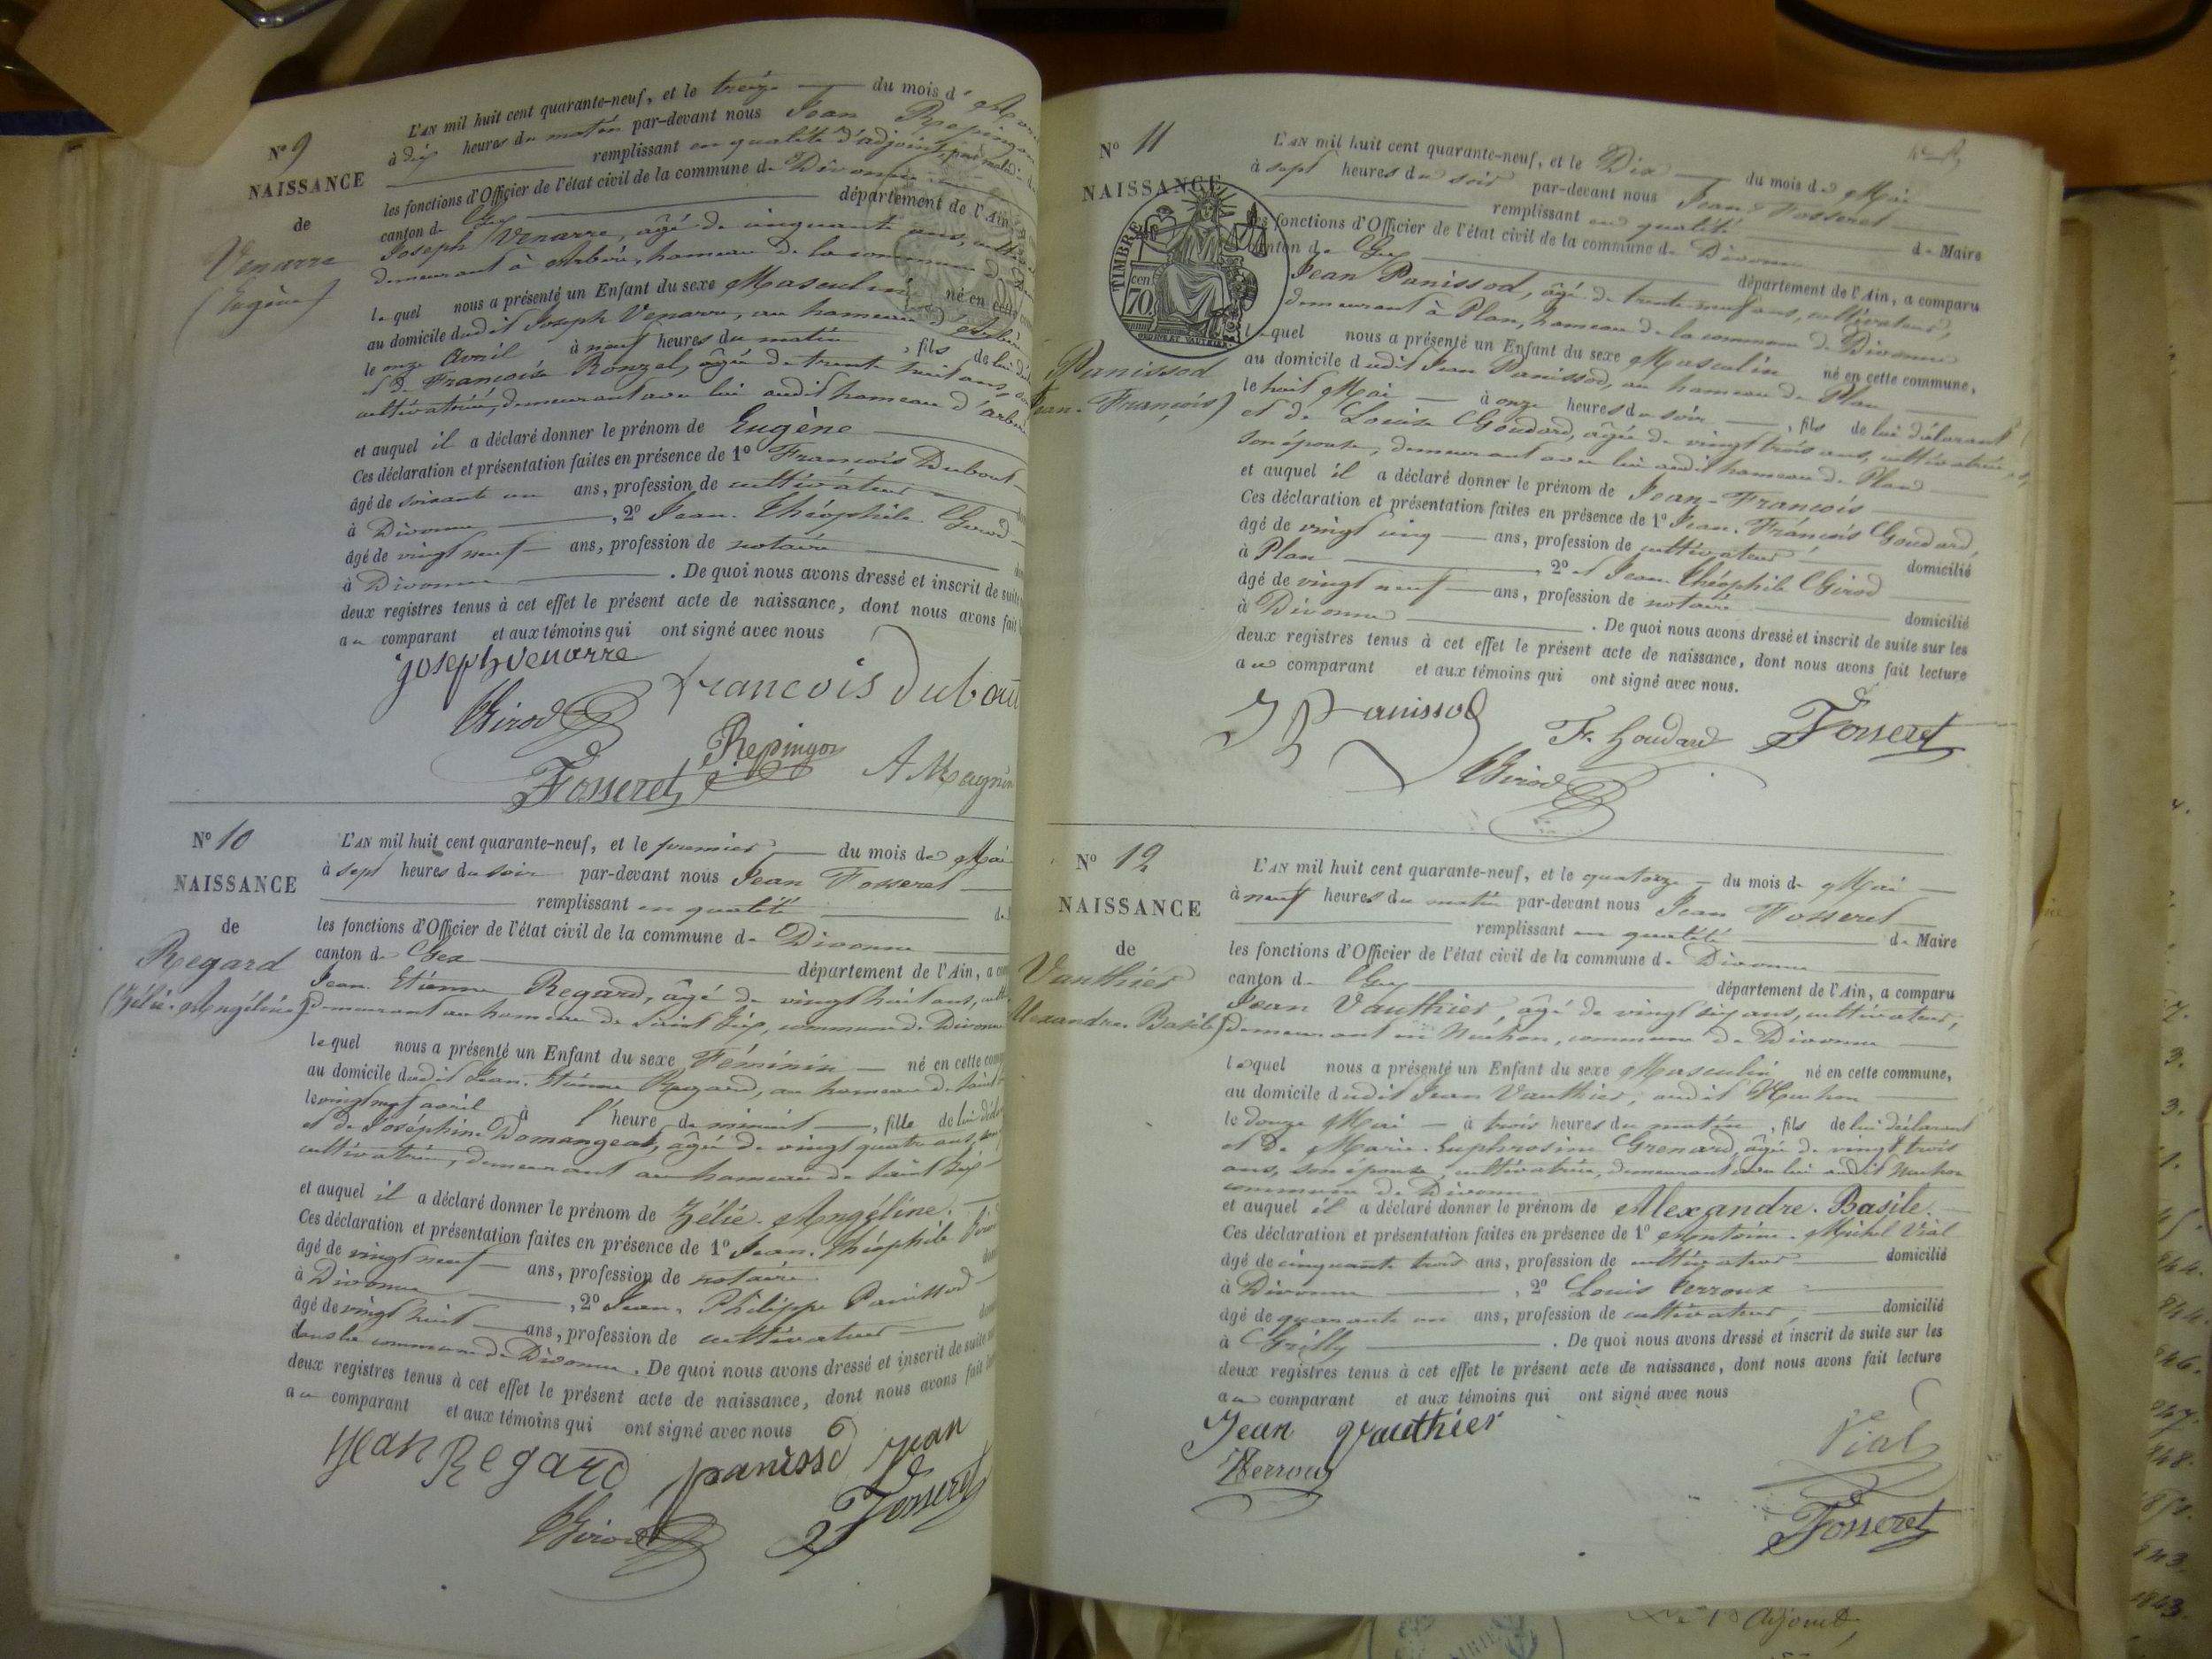 N° 9
NAISSANCE
de
Venarre
(Eugène)
L'AN mil huit cent quarante-neuf, et le treize du mois d'
à dix heures du matin par-devant nous Jean Repingon
remplissant en qualité d'adjoint
les fonctions d'Officier de l'état civil de la commune de Divonne
canton de Gex département de l'Ain
Joseph Venarre, âgé de cinquante ans,
demeurant à Arbère, hameau de la commune
lequel nous a présenté un Enfant du sexe Masculin né en cette
au domicile dudit Joseph Venarre, au hameau d'Arbère
le onze Avril à neuf heures du matin, fils de lui
et de Françoise Ronzel, âgée de trente huit ans,
cultivatrice, demeurant avec lui audit hameau d'Arbère
et auquel il a déclaré donner le prénom de Eugène
Ces déclaration et présentation faites en présence de 1° François Dubout
âgé de soixante un ans, profession de cultivateur
à Divonne, 2° Jean-Théophile Girod
âgé de vingt neuf ans, profession de notaire
à Divonne. De quoi nous avons dressé et inscrit de suite
deux registres tenus à cet effet le présent acte de naissance, dont nous avons fait
au comparant et aux témoins qui ont signé avec nous
joseph venarre
françois dubout
Girod
Repingon
Fosseret
A Magnin
N° 10
NAISSANCE
de
Regard
(Zélie-Angéline)
L'AN mil huit cent quarante-neuf, et le premier du mois de Mai
à sept heures du soir par-devant nous Jean Fosseret
remplissant en qualité
les fonctions d'Officier de l'état civil de la commune de Divonne
canton de Gex département de l'Ain, a
Jean-Etienne Regard, âgé de vingt huit ans,
demeurant au hameau de Saint Gix, commune de Divonne
lequel nous a présenté un Enfant du sexe Féminin né en cette
au domicile dudit Jean-Etienne Regard, au hameau de Saint
le vingt neuf avril à l'heure de minuit, fille de lui
et de Joséphine Domangeat, âgée de vingt quatre ans,
cultivatrice, demeurant au hameau de Saint Gix
et auquel il a déclaré donner le prénom de Zélie-Angéline.
Ces déclaration et présentation faites en présence de 1° Jean-Théophile Girod
âgé de vingt neuf ans, profession de notaire
à Divonne, 2° Jean-Philippe Panissod
âgé de vingt huit ans, profession de cultivateur
dans la commune de Divonne. De quoi nous avons dressé et inscrit de suite
deux registres tenus à cet effet le présent acte de naissance, dont nous avons fait
au comparant et aux témoins qui ont signé avec nous
jean Regard
panissod jean
Girod
Fosseret
N° 11
NAISSANCE
TIMBRE
70
Panissod
Jean-François)
L'AN mil huit cent quarante-neuf, et le Dix du mois de Mai
à sept heures du soir par-devant nous Jean Fosseret
remplissant en qualité de Maire
les fonctions d'Officier de l'état civil de la commune de Divonne
canton de Gex département de l'Ain, a comparu
Jean Panissod, âgé de trente neuf ans, cultivateur,
demeurant à Plan, hameau de la commune de Divonne
lequel nous a présenté un Enfant du sexe Masculin né en cette commune,
au domicile dudit Jean Panissod, au hameau de Plan
le huit Mai à onze heures du soir, fils de lui déclarant
et de Louise Goudard, âgée de vingt trois ans, cultivatrice
son épouse, demeurant avec lui audit hameau de Plan
et auquel il a déclaré donner le prénom de Jean-François
Ces déclaration et présentation faites en présence de 1° Jean-François Goudard,
âgé de vingt cinq ans, profession de cultivateur domicilié
à Plan, 2° et Jean-Théophile Girod
âgé de vingt neuf ans, profession de notaire domicilié
à Divonne. De quoi nous avons dressé et inscrit de suite sur les
deux registres tenus à cet effet le présent acte de naissance, dont nous avons fait lecture
au comparant et aux témoins qui ont signé avec nous.
Panissod
F. Goudard
Fosseret
Girod
N° 12
NAISSANCE
de
Vauthier
Alexandre-Basile)
L'AN mil huit cent quarante-neuf, et le quatorze du mois de Mai
à neuf heures du matin par-devant nous Jean Fosseret
remplissant en qualité de Maire
les fonctions d'Officier de l'état civil de la commune de Divonne
canton de Gex département de l'Ain, a comparu
Jean Vauthier, âgé de vingt six ans, cultivateur,
demeurant en Huchon, commune de Divonne
lequel nous a présenté un Enfant du sexe Masculin né en cette commune,
au domicile dudit Jean Vauthier, audit Huchon
le douze Mai à trois heures du matin, fils de lui déclarant
et de Marie-Euphrosine Grenard, âgée de vingt trois
ans, son épouse, cultivatrice, demeurant avec lui audit Huchon
commune de Divonne
et auquel il a déclaré donner le prénom de Alexandre-Basile.
Ces déclaration et présentation faites en présence de 1° Antoine-Michel Vial
âgé de cinquante trois ans, profession de cultivateur domicilié
à Divonne, 2° Louis Verroux
âgé de quarante un ans, profession de cultivateur, domicilié
à Grilly. De quoi nous avons dressé et inscrit de suite sur les
deux registres tenus à cet effet le présent acte de naissance, dont nous avons fait lecture
au comparant et aux témoins qui ont signé avec nous
Jean Vauthier
Verroux
Vial
Fosseret